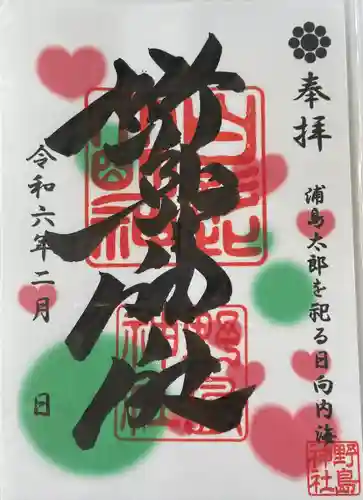 奉拝
浦島太郎を祀る日向内海
野島神社
野島神社
令和六年二月　日